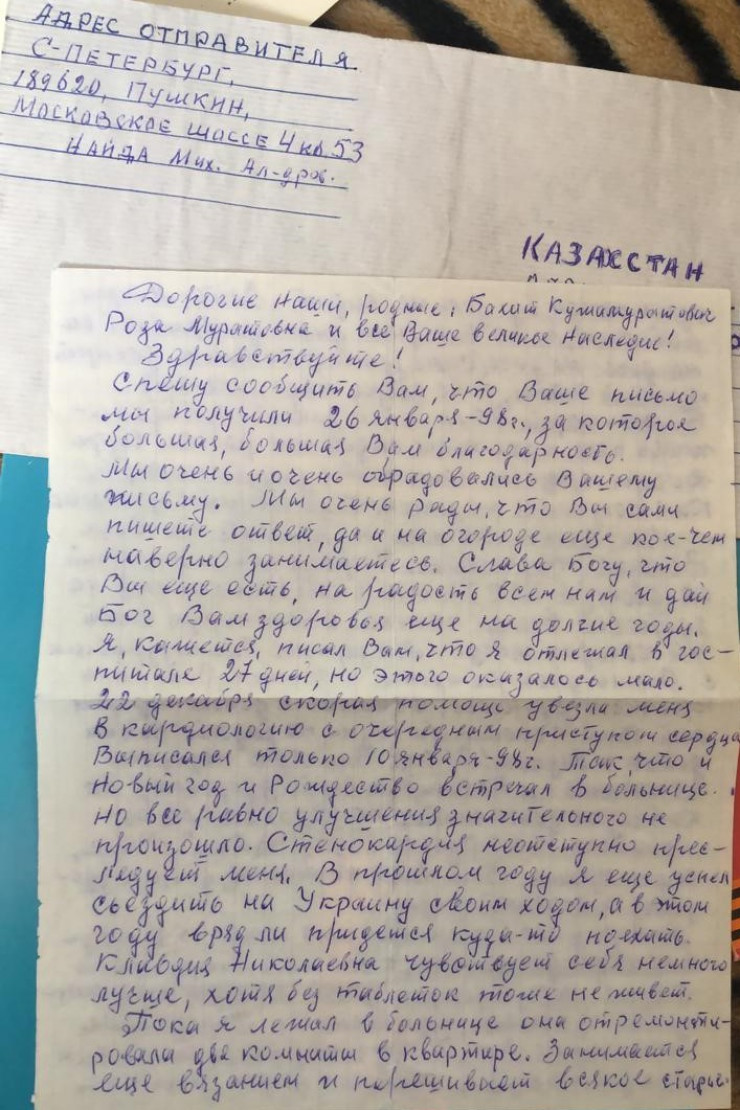 АДРЕС ОТПРАВИТЕЛЯ
С-ПЕТЕРБУРГ,
189620, ПУШКИН,
МОСКОВСКОЕ шоссе 4 кв. 53
НАЙДА Мих. Ал-дров.
КАЗАХСТАН
Дорогие наши, родные, Бахит Кужамуратович
Роза Муратовна и все Ваше великое наследие!
Здравствуйте!
Спешу сообщить Вам, что Ваше письмо
мы получили 26 января-98г., за которое
большая, большая Вам благодарность.
Мы очень и очень обрадовались Вашему
письму. Мы очень рады, что Вы сами
пишете ответ, да и на огороде еще кое-чем
наверно занимаетесь. Слава Богу, что
Вы еще есть, на радость всем нам и дай
Бог Вам здоровья еще на долгие годы.
Я, кажется, писал Вам, что я отлежал в гос-
питале 27 дней, но этого оказалось мало.
22 декабря скорая помощь увезла меня
в кардиологию с очередным приступом сердца
Выписался только 10 января-98г. Так, что и
Новый год и Рождество встречал в больнице.
Но все равно улучшения значительного не
произошло. Стенокардия неотступно прес-
ледует меня. В прошлом году я еще успел
съездить на Украину своим ходом, а в этом
году врядли придется куда-то поехать.
Клавдия Николаевна чувствует себя немного
лучше, хотя без таблеток тоже не живет.
Пока я лежал в больнице она отремонти-
ровала две комнаты в квартире. Занимается
еще вязанием и перешивает всякое старье.